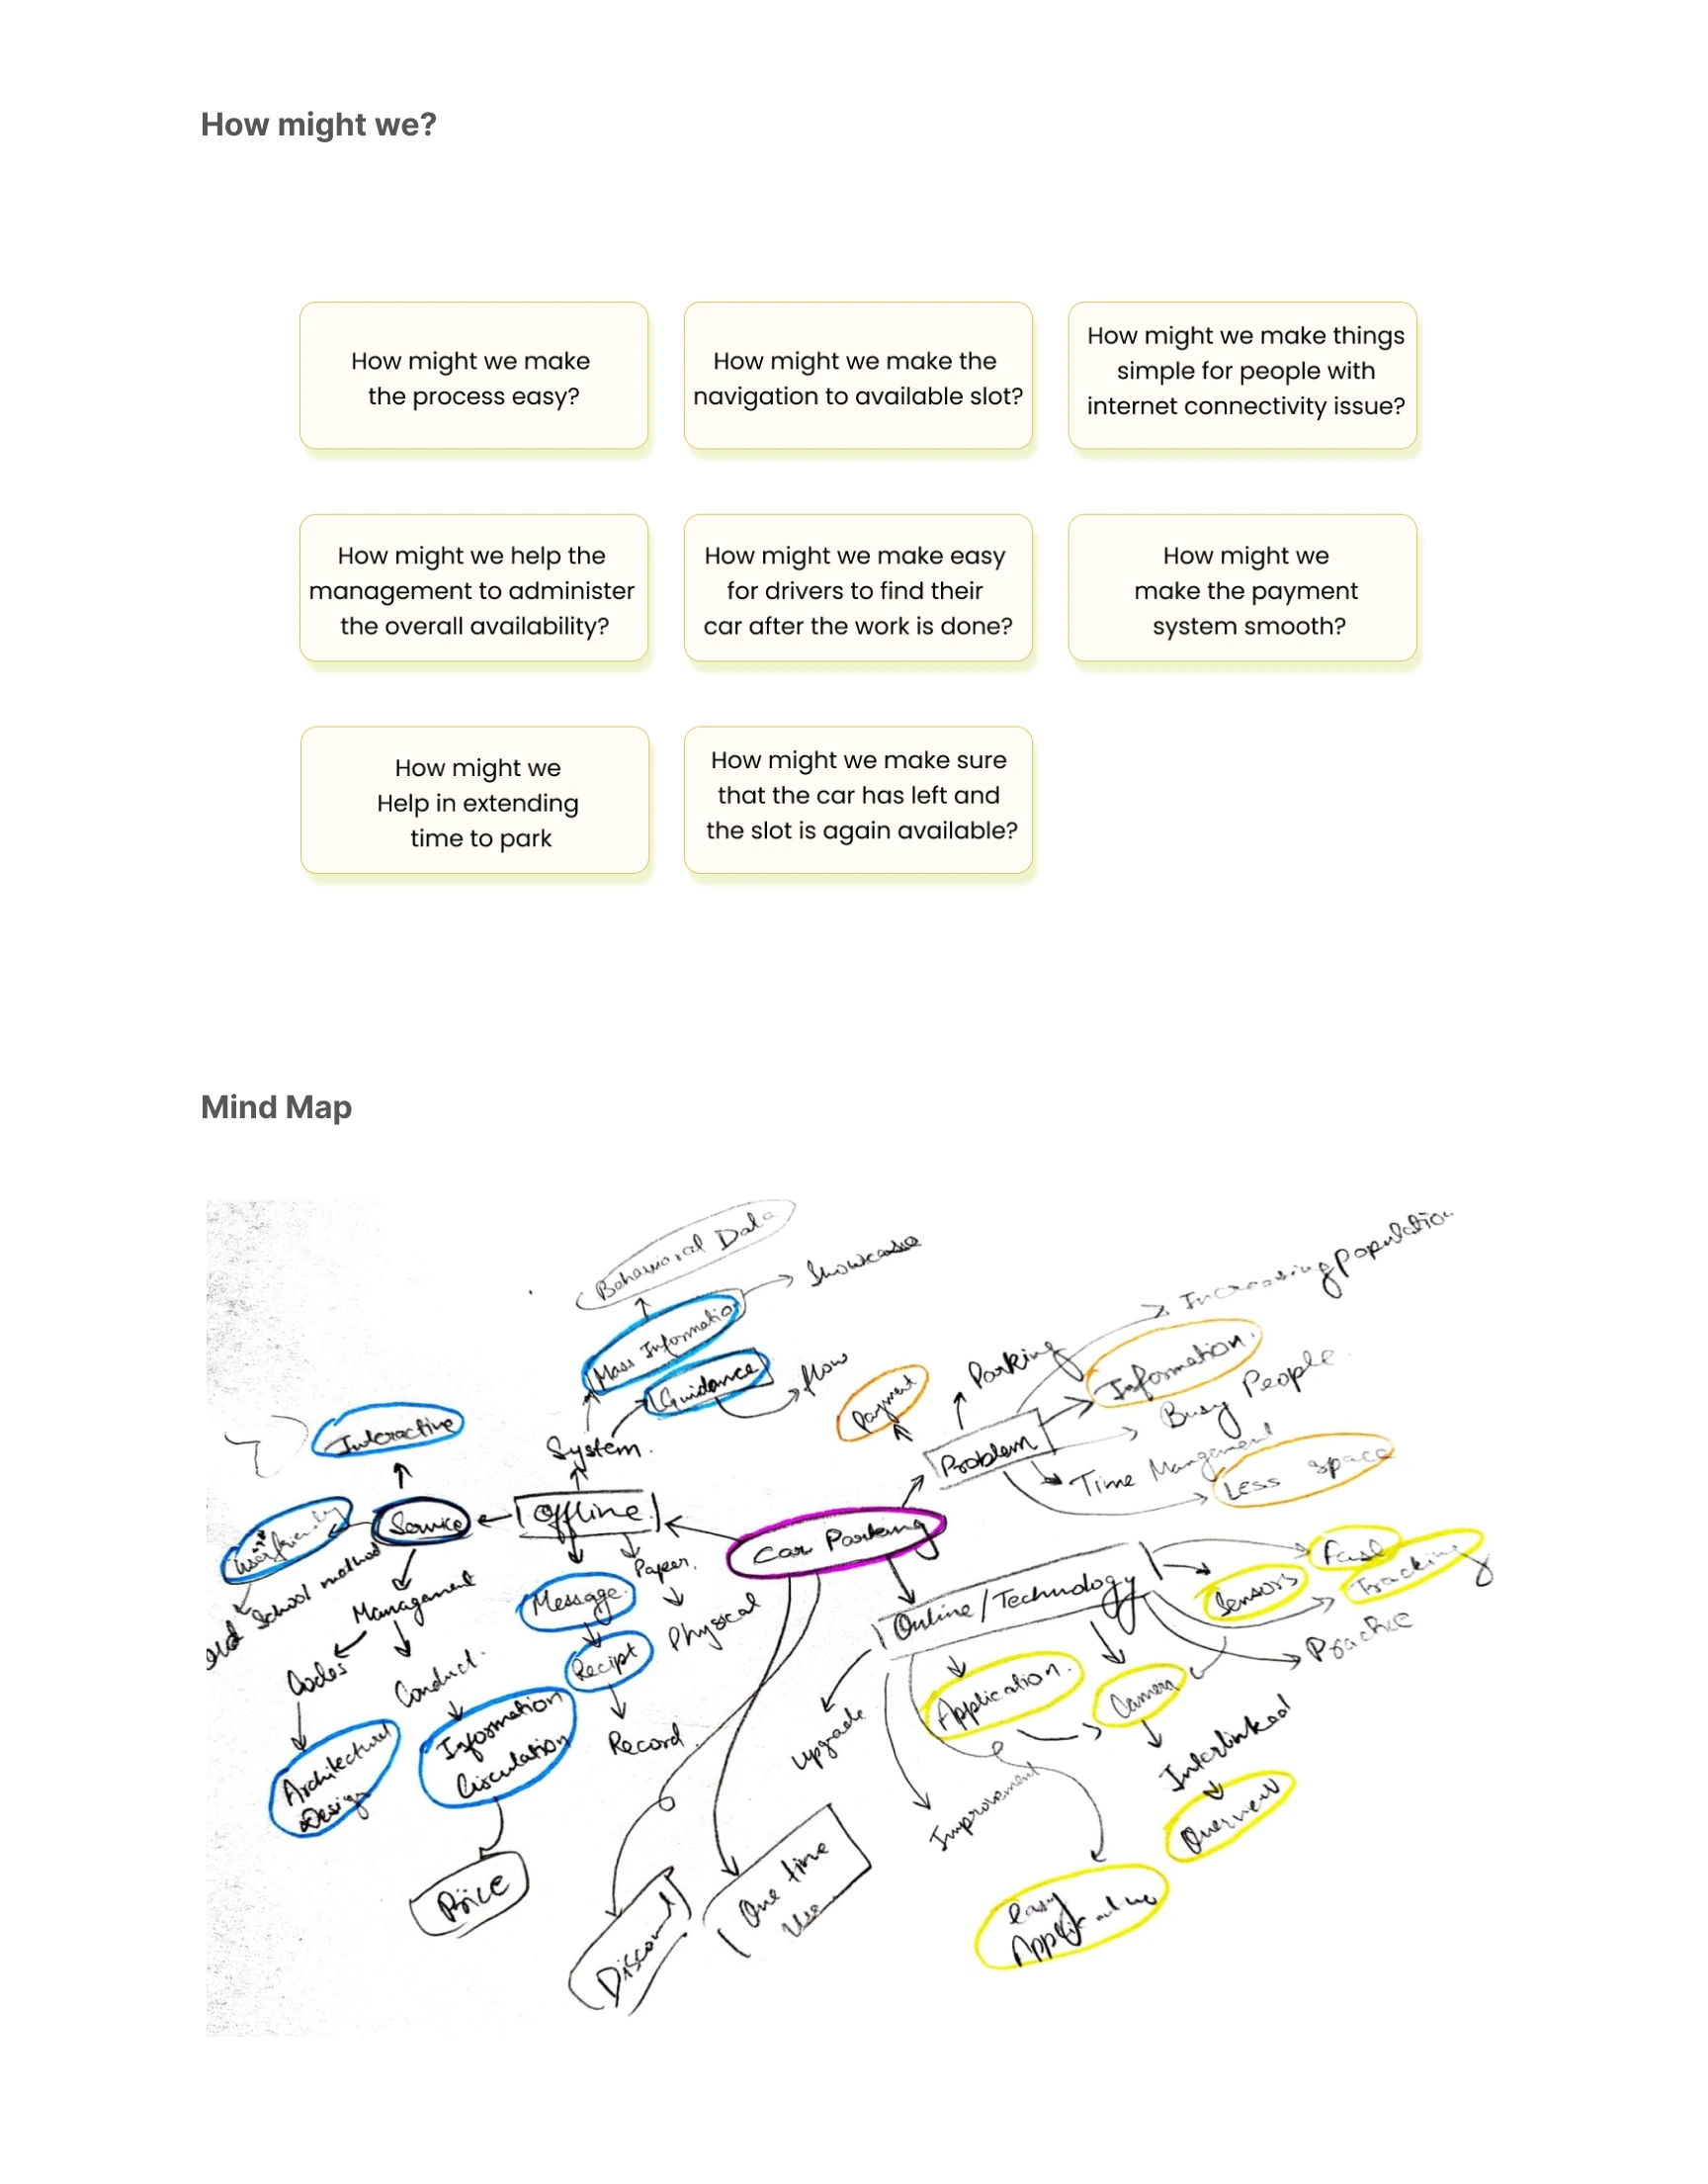 How might we?
How might we make
the process easy?
How might we make the
navigation to available slot?
How might we make things
simple for people with
internet connectivity issue?
How might we help the
management to administer
the overall availability?
How might we make easy
for drivers to find their
car after the work is done?
How might we
make the payment
system smooth?
How might we
Help in extending
time to park
How might we make sure
that the car has left and
the slot is again available?
Mind Map
Behavioral Data
Showcase
Mass Information
Guidance
flow
System.
Interactive
Service
Offline
userfriendly
old School method
Management
Codes
Conduct.
Architectural
Design
Information
Circulation
Price
Message.
Recipt
Record.
Paper.
Physical
Car Parking
Discount
One time
Use
Problem
Payment
Parking
Increasing Population
Information.
Busy People.
Time Mangement
Less space
Online/Technology
Fast
Sensors
Tracking
Practice
Camera
Interlinked
Overview
Application.
Upgrade
Improvement
easy